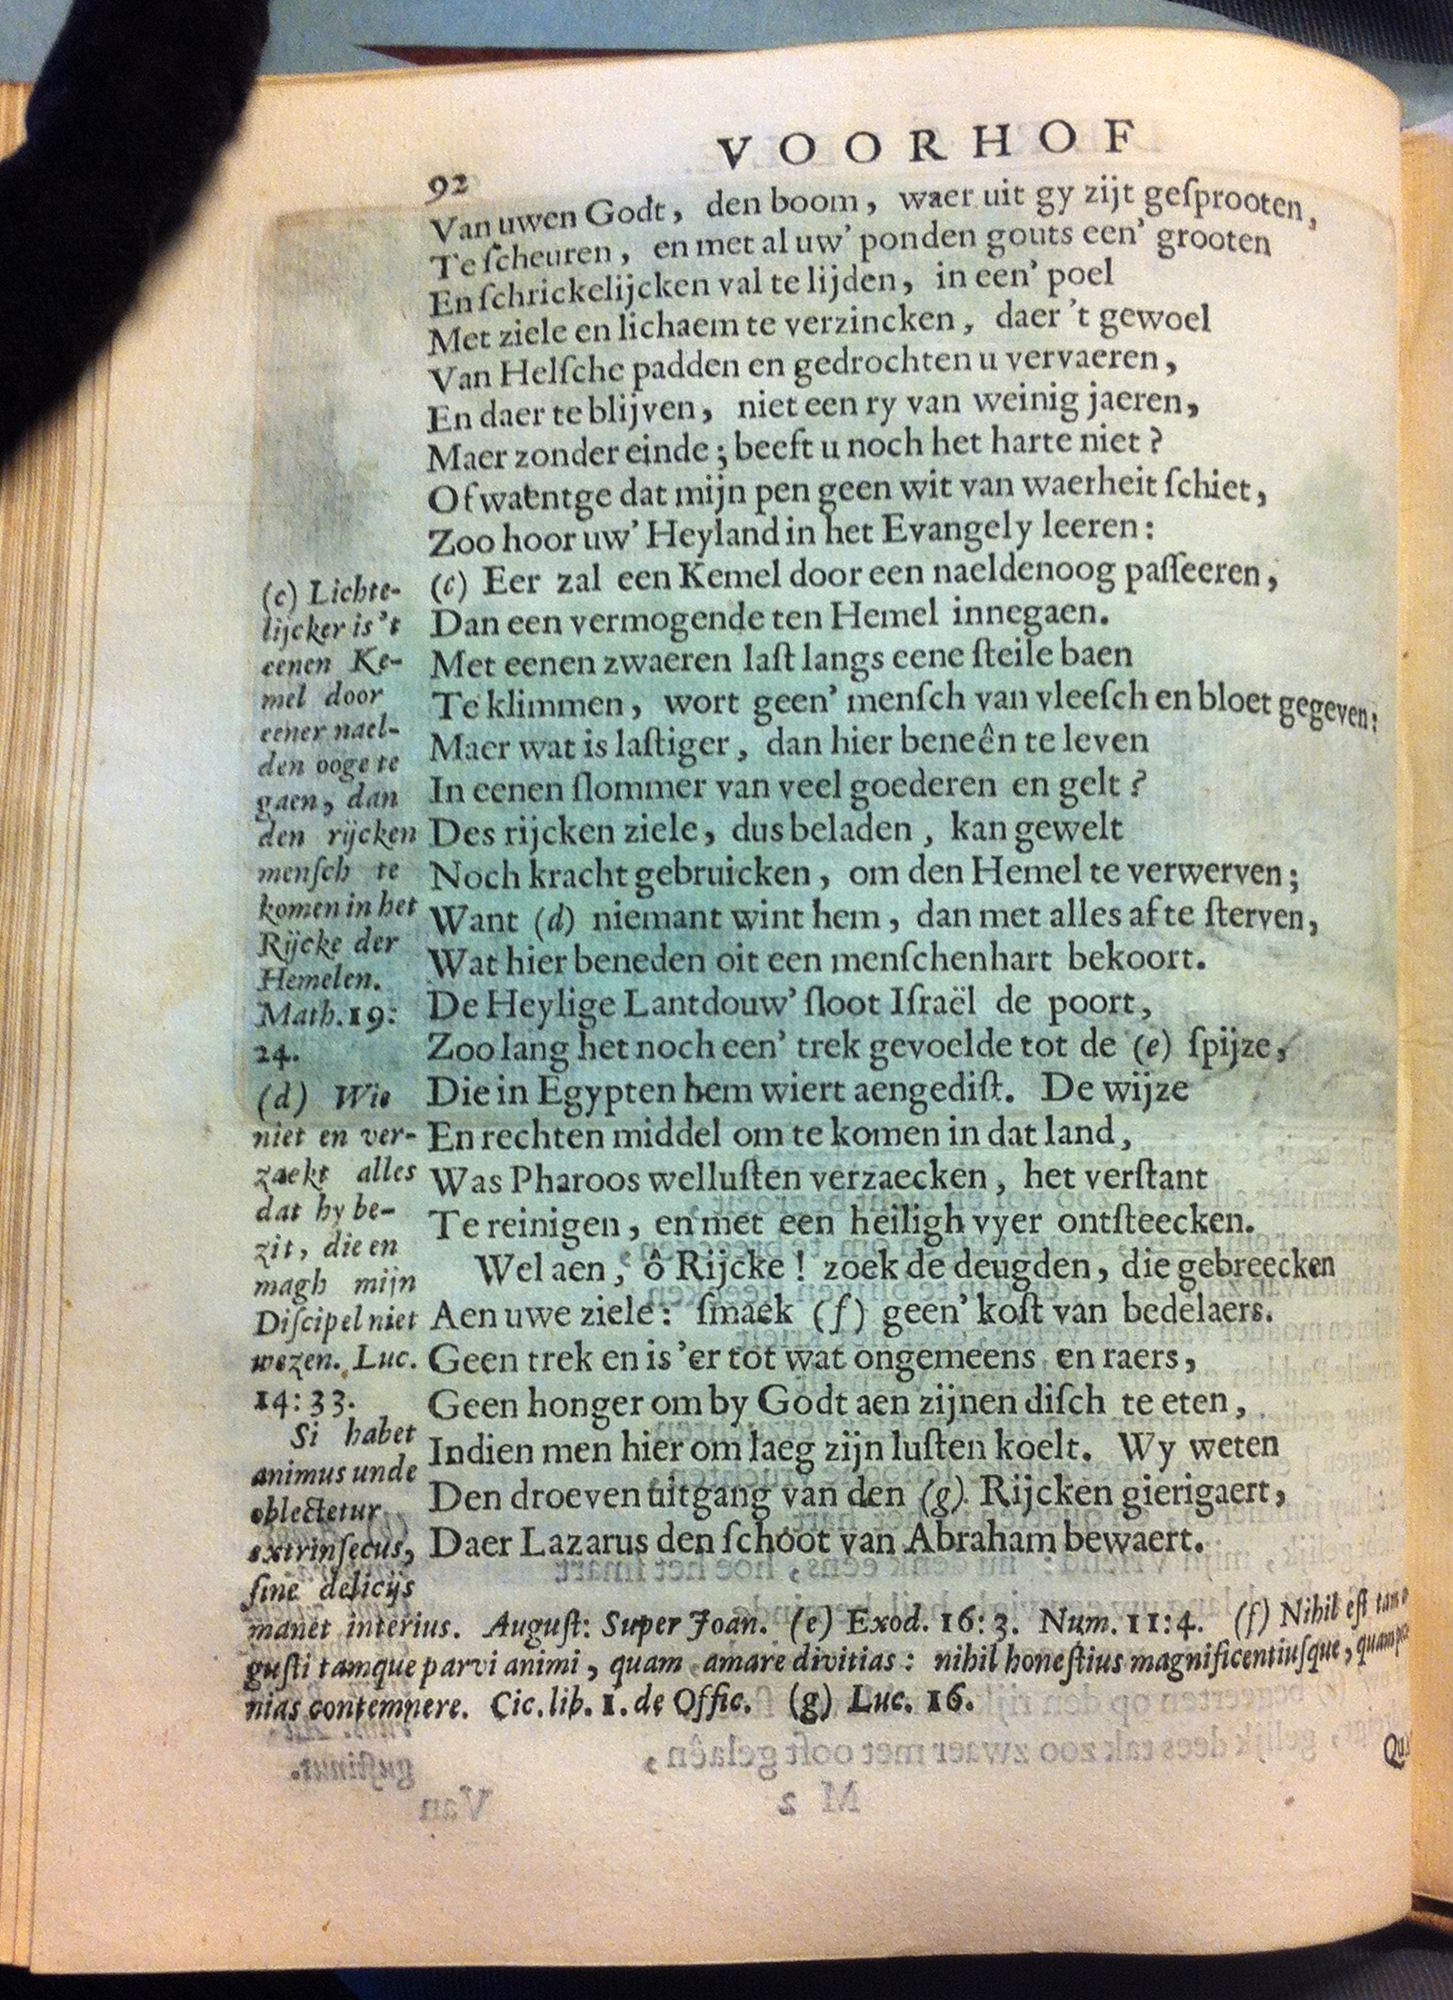 VOORHOF
92
Van uwen Godt, den boom, waer uit gy zijt geſprooten,
Te ſcheuren, en met al uw' ponden gouts een' grooten
En ſchrickelijcken val te lijden, in een' poel
Met ziele en lichaem te verzincken, daer 't gewoel
Van Helſche padden en gedrochten u vervaeren,
En daer te blijven, niet een ry van weinig jaeren,
Maer zonder einde; beeft u noch het harte niet?
Of waentge dat mijn pen geen wit van waerheit ſchiet,
Zoo hoor uw' Heyland in het Evangely leeren:
(c) Eer zal een Kemel door een naeldenoog paſſeeren,
Dan een vermogende ten Hemel innegaen.
Met eenen zwaeren laſt langs eene ſteile baen
Te klimmen, wort geen' menſch van vleeſch en bloet gegeven:
Maer wat is laſtiger, dan hier beneên te leven
In eenen ſlommer van veel goederen en gelt?
Des rijcken ziele, dus beladen, kan gewelt
Noch kracht gebruicken, om den Hemel te verwerven;
Want (d) niemant wint hem, dan met alles af te ſterven,
Wat hier beneden oit een menſchenhart bekoort.
De Heylige Lantdouw' ſloot Iſraël de poort,
Zoo lang het noch een' trek gevoelde tot de (e) ſpijze,
Die in Egypten hem wiert aengediſt. De wijze
En rechten middel om te komen in dat land,
Was Pharoos welluſten verzaecken, het verſtant
Te reinigen, en met een heiligh vyer ontſteecken.
Wel aen, ô Rijcke! zoek de deugden, die gebreecken
Aen uwe ziele: ſmaek (f) geen' koſt van bedelaers.
Geen trek en is 'er tot wat ongemeens en raers,
Geen honger om by Godt aen zijnen diſch te eten,
Indien men hier om laeg zijn luſten koelt. Wy weten
Den droeven uitgang van den (g) Rijcken gierigaert,
Daer Lazarus den ſchoot van Abraham bewaert.
(c) Lichte-
lijcker is 't
eenen Ke-
mel door
eener nael-
den ooge te
gaen, dan
den rijcken
menſch te
komen in het
Rijcke der
Hemelen.
Math. 19:
24.
(d) Wie
niet en ver-
zaekt alles
dat hy be-
zit, die en
magh mijn
Diſcipel niet
wezen. Luc.
14:33.
Si habet
animus unde
oblectetur
extrinſecus,
ſine delicijs
manet interius. Auguſt: Super Joan. (e) Exod. 16:3. Num. 11:4. (f) Nihil eſt tam
guſti tamque parvi animi, quam amare divitias: nihil honeſtius magnificentiuſque, quam
nias contemnere. Cic. lib. 1. de Offic. (g) Luc. 16.